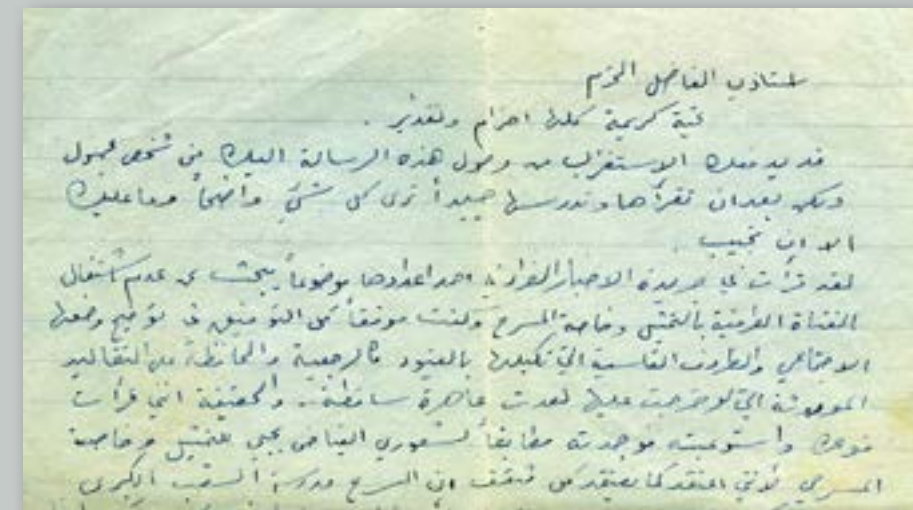 استاذي الفاضل المحترم
تحية كريمة كلها احترام وتقدير .
قد يدفعك الاستغراب من وصول هذه الرسالة اليك من شخص مجهول
ولكن بعد ان تقرأها وتدرسها جيداً ترى كل شيء واضحاً وما عليك
الا ان تجيب .
لقد قرأت في جريدة الاخبار الغراء في احد اعدادها موضوعاً يبحث عن عدم اشتغال
الفتاة العراقية بالتمثيل وخاصة المسرح وكنت موفقاً كل التوفيق في توضيح وضعها
الاجتماعي والظروف القاسية التي تكبلها بالقيود كالرجعية والمحافظة على التقاليد
الموروثة التي لو خرجت عليها لعدت عاهرة ساقطة .. والحقيقة انني قرأت
واستوعبته فوجدته مطابقاً لشعوري الفياض بحبي للتمثيل وخاصة
المسرحي لأنني اعتقد كما يعتقد كل مثقف ان المسرح مدرسة الشعب الكبرى